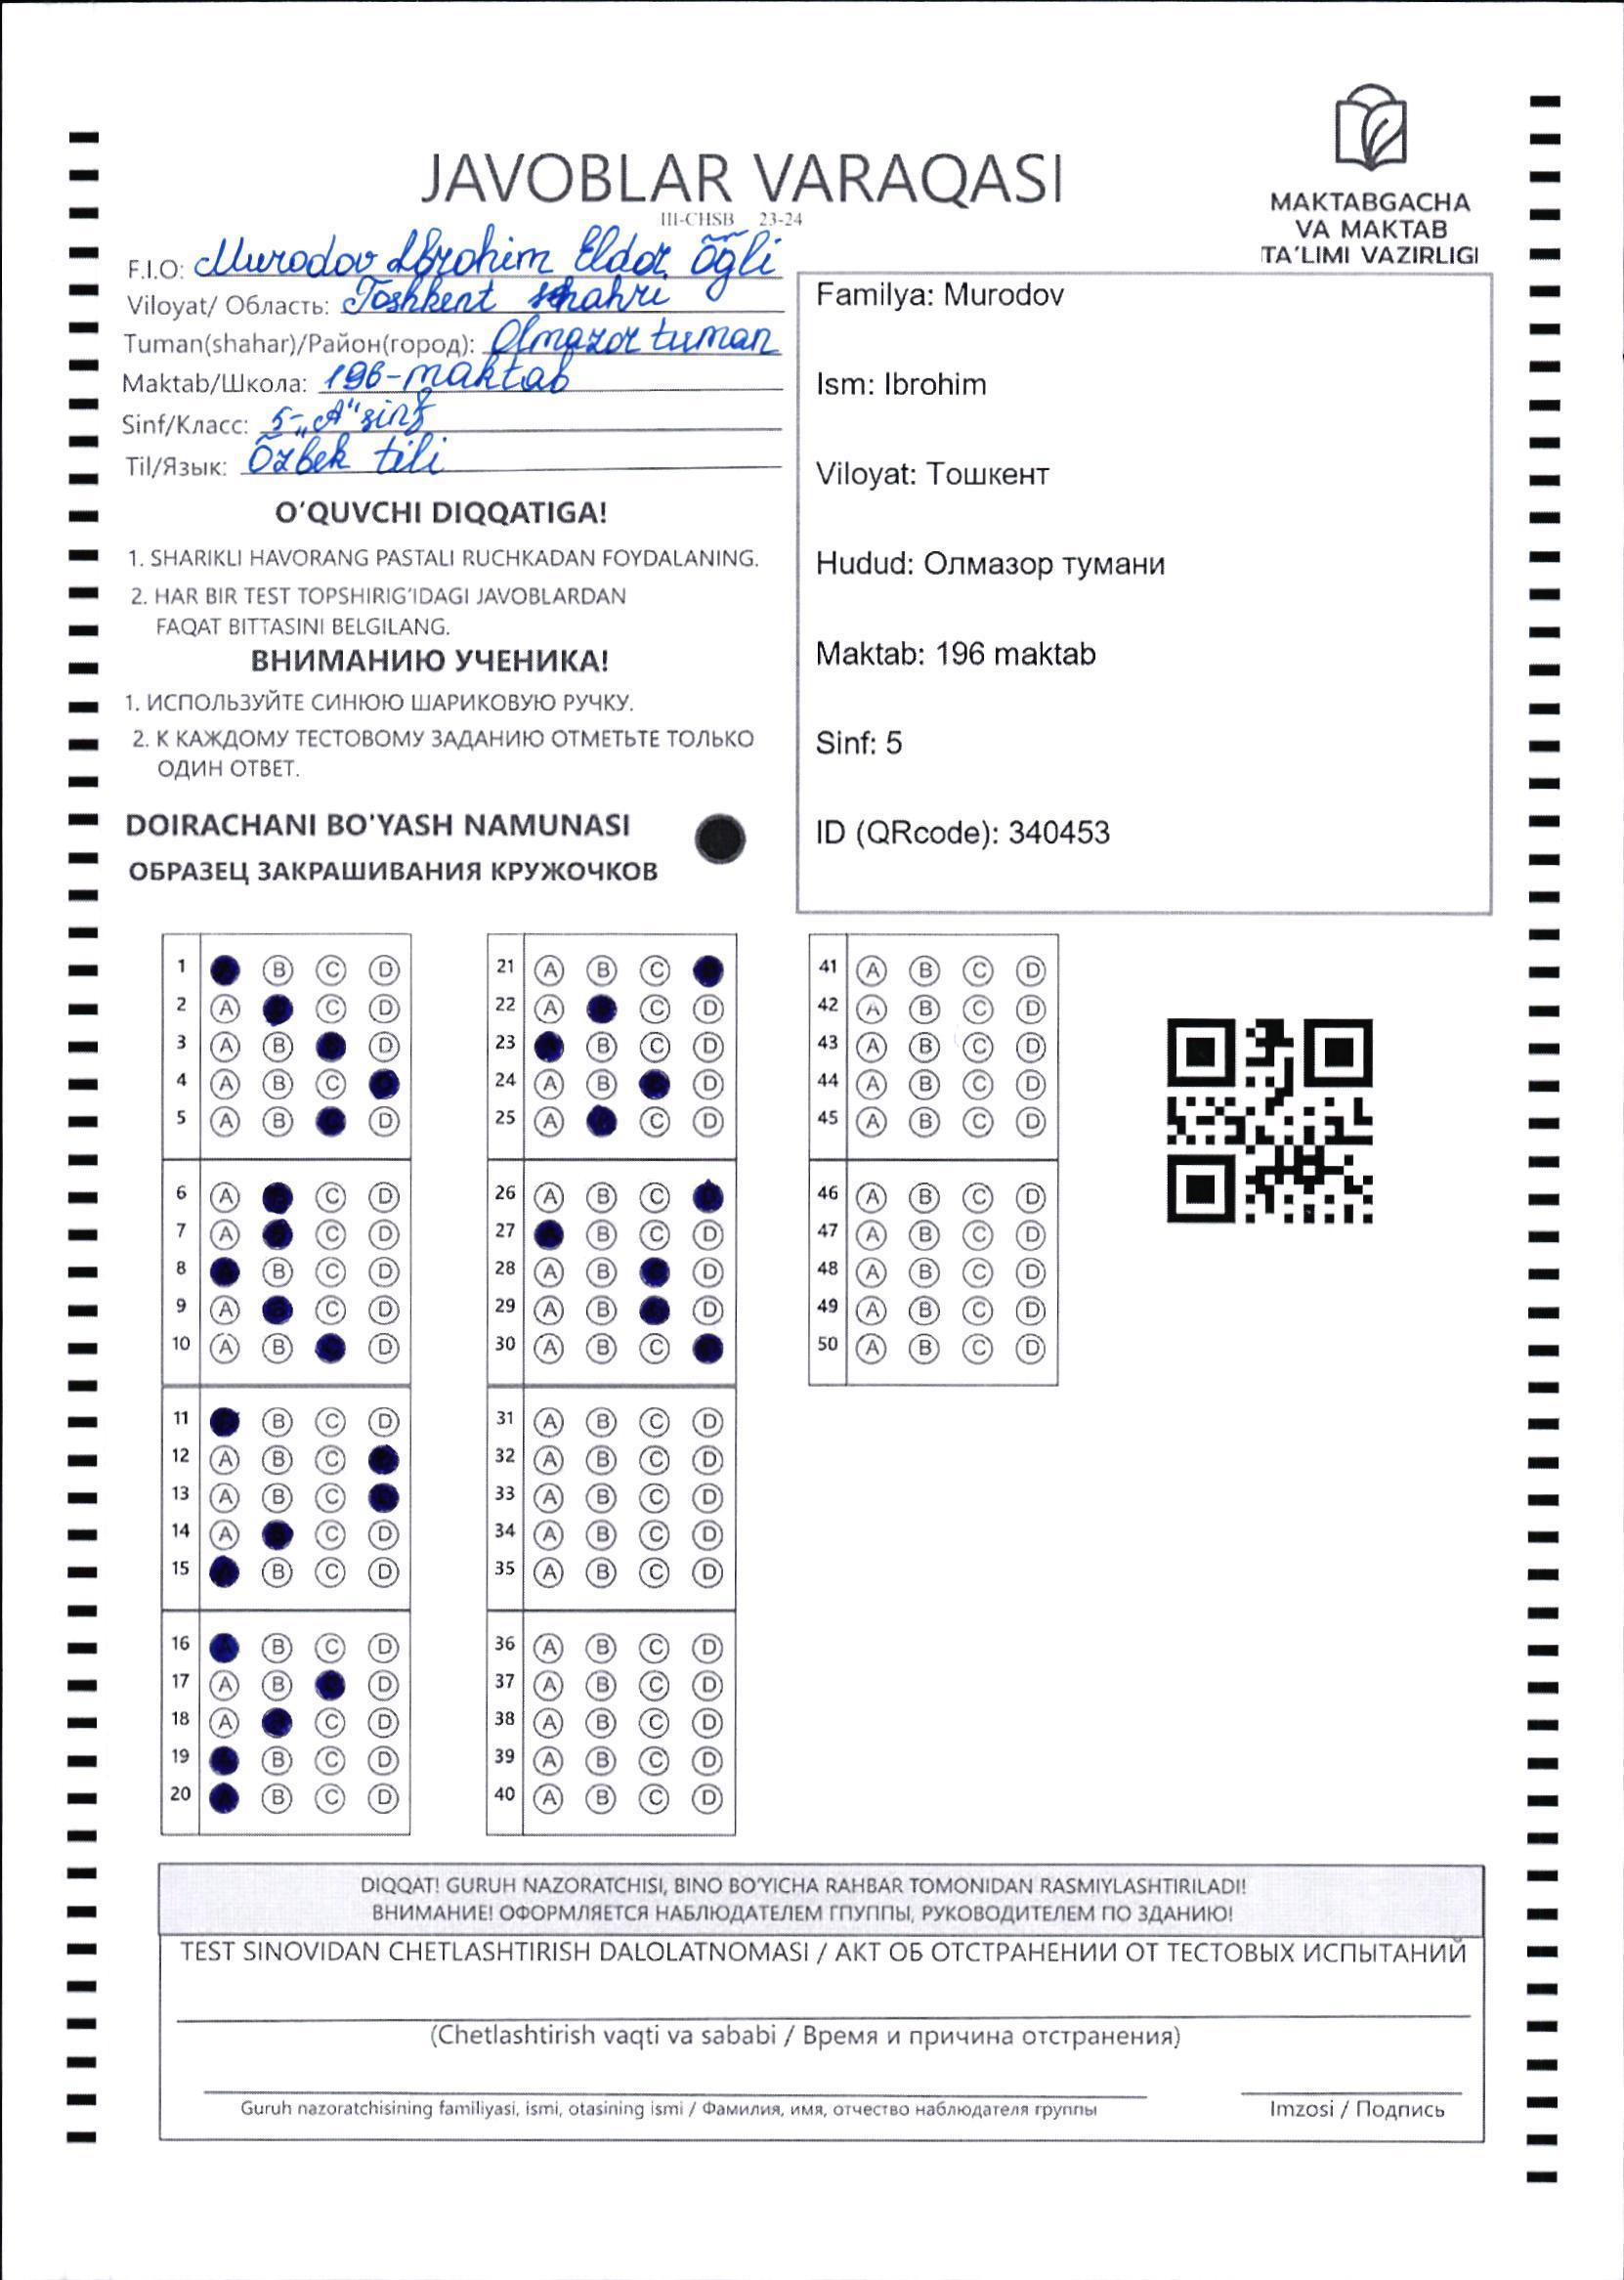 JAVOBLAR VARAQASI
III-CHSB 23-24
MAKTABGACHA
VA MAKTAB
TA'LIMI VAZIRLIGI
F.I.O: Murodov Ibrohim Eldor õğli
Viloyat/ Область: Toshkent shahri
Tuman(shahar)/Район(город): Olmazor tuman
Maktab/Школа: 196-maktab
Sinf/Класс: 5-„A" sinf
Til/Язык: Õzbek tili
O'QUVCHI DIQQATIGA!
1. SHARIKLI HAVORANG PASTALI RUCHKADAN FOYDALANING.
2. HAR BIR TEST TOPSHIRIG'IDAGI JAVOBLARDAN
FAQAT BITTASINI BELGILANG.
ВНИМАНИЮ УЧЕНИКА!
1. ИСПОЛЬЗУЙТЕ СИНЮЮ ШАРИКОВУЮ РУЧКУ.
2. К КАЖДОМУ ТЕСТОВОМУ ЗАДАНИЮ ОТМЕТЬТЕ ТОЛЬКО
ОДИН ОТВЕТ.
DOIRACHANI BO'YASH NAMUNASI
ОБРАЗЕЦ ЗАКРАШИВАНИЯ КРУЖОЧКОВ
Familya: Murodov
Ism: Ibrohim
Viloyat: Тошкент
Hudud: Олмазор тумани
Maktab: 196 maktab
Sinf: 5
ID (QRcode): 340453
1 B C D
2 A C D
3 A B D
4 A B C
5 A B D
6 A C D
7 A C D
8 B C D
9 A C D
10 A B D
11 B C D
12 A B C
13 A B C
14 A C D
15 B C D
16 A B C D
17 A B D
18 A C D
19 B C D
20 B C D
21 A B C
22 A C D
23 B C D
24 A B D
25 A C D
26 A B C
27 B C D
28 A B D
29 A B D
30 A B C
31 A B C D
32 A B C D
33 A B C D
34 A B C D
35 A B C D
36 A B C D
37 A B C D
38 A B C D
39 A B C D
40 A B C D
41 A B C D
42 A B C D
43 A B C D
44 A B C D
45 A B C D
46 A B C D
47 A B C D
48 A B C D
49 A B C D
50 A B C D
DIQQAT! GURUH NAZORATCHISI, BINO BO'YICHA RAHBAR TOMONIDAN RASMIYLASHTIRILADI!
ВНИМАНИЕ! ОФОРМЛЯЕТСЯ НАБЛЮДАТЕЛЕМ ГПУППЫ, РУКОВОДИТЕЛЕМ ПО ЗДАНИЮ!
TEST SINOVIDAN CHETLASHTIRISH DALOLATNOMASI / АКТ ОБ ОТСТРАНЕНИИ ОТ ТЕСТОВЫХ ИСПЫТАНИЙ
(Chetlashtirish vaqti va sababi / Время и причина отстранения)
Guruh nazoratchisining familiyasi, ismi, otasining ismi / Фамилия, имя, отчество наблюдателя группы
Imzosi / Подпись